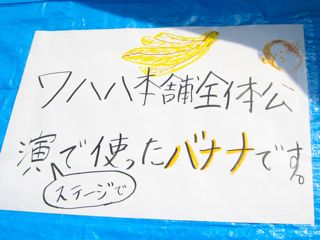 ワハハ本舗全体公
演で使ったバナナです。
ステージで